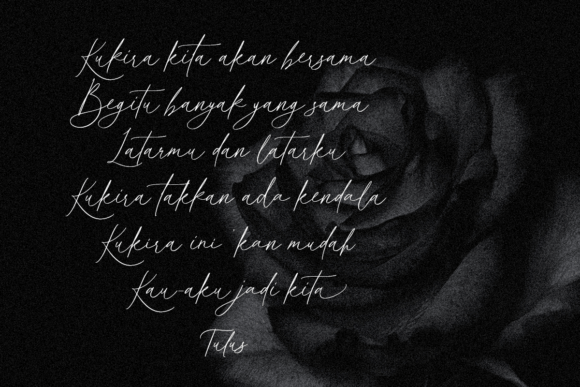 Kukira kita akan bersama
Begitu banyak yang sama
Latarmu dan latarku
Kukira takkan ada kendala
Kukira ini 'kan mudah
Kau-aku jadi kita
Tulus